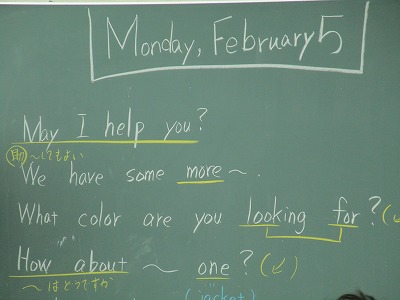 Monday, February 5
May I help you?
助 〜してもよい
We have some more 〜.
What color are you looking for? (↙)
How about 〜 one? (↙)
〜はどうですか
(jacket)